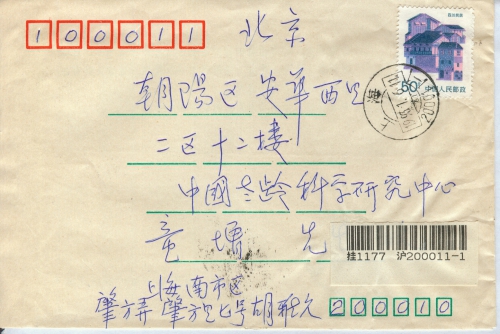 100011
北京
朝陽区安華西里
二区十二樓
中國老齡科学研究中心
童
先
上海南市区
肇方弄肇方 号胡
200010
50
中国人民邮政
上海
挂1177 沪200011-1